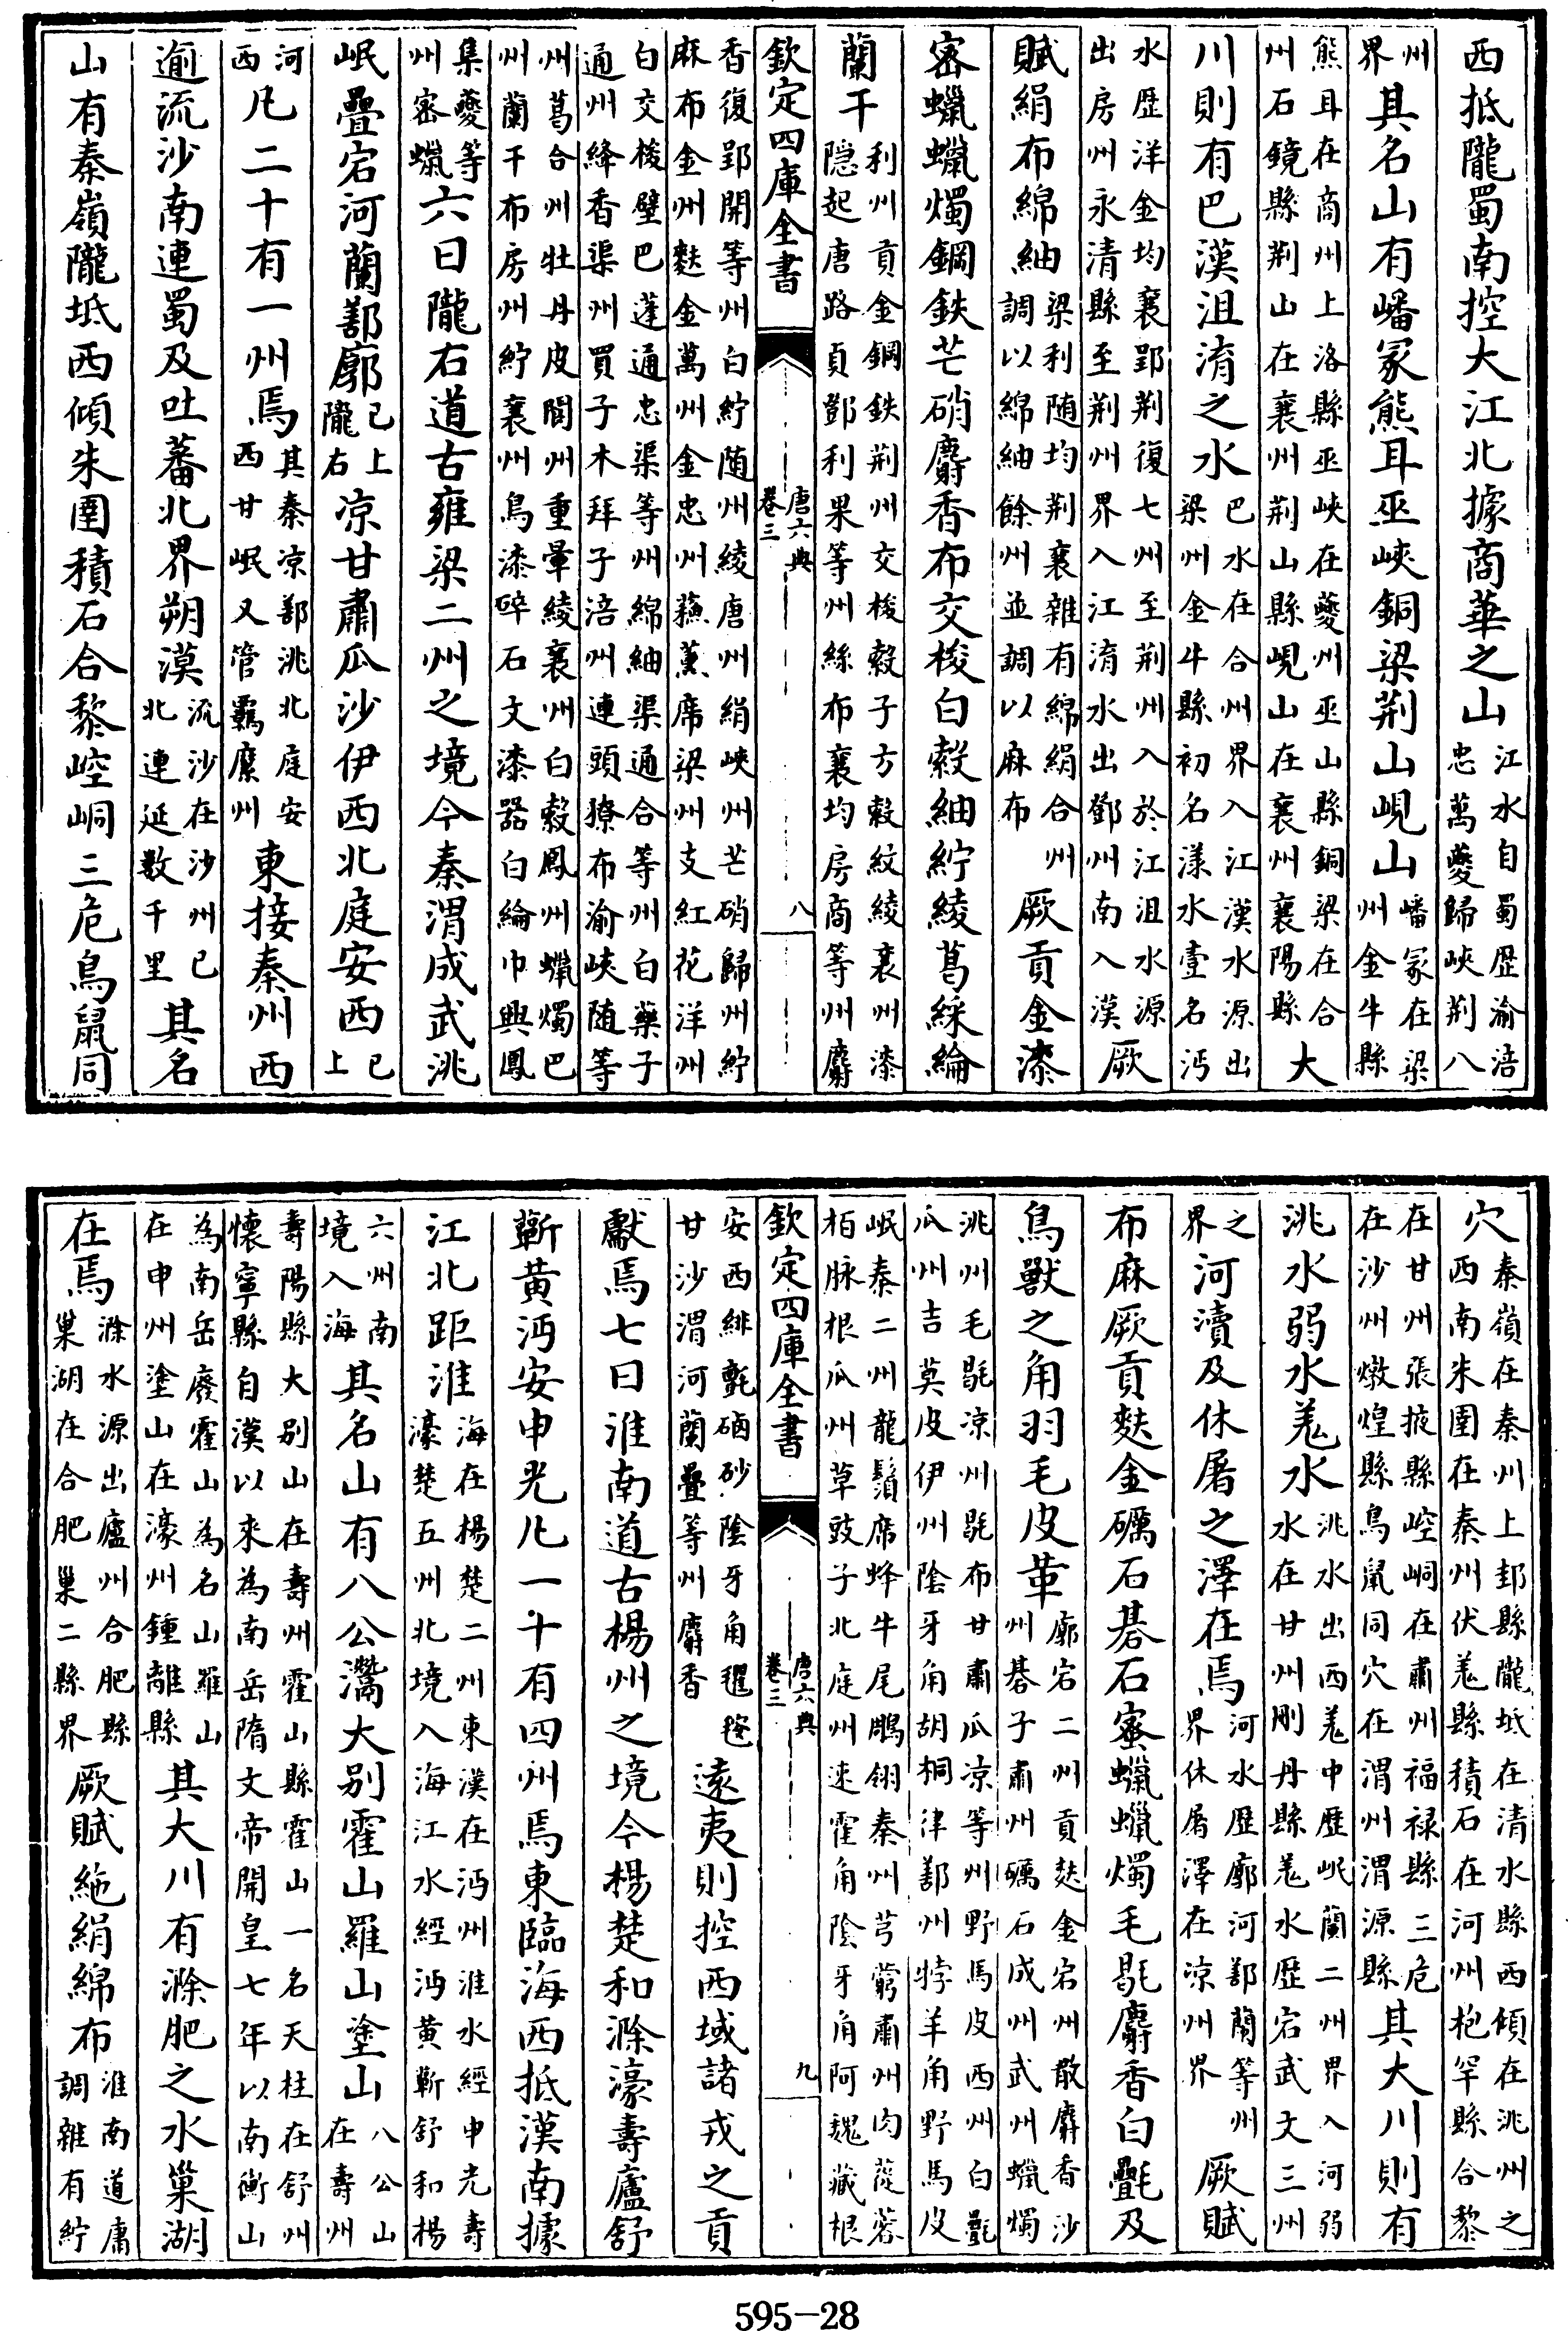 西抵隴蜀南控大江北據商華之山江水自蜀歷渝涪忠萬夔歸峽荆八
州界其名山有嶓冢熊耳巫峽銅梁荆山峴山嶓冢在梁州金牛縣
熊耳在商州上洛縣巫峽在夔州巫山縣銅梁在合州石鏡縣荆山在襄州荆山縣峴山在襄州襄陽縣大
川則有巴漢沮淯之水巴水在合州界入江漢水源出梁州金牛縣初名漾水壹名沔
水歷洋金均襄郢荆復七州至荆州入於江沮水源出房州永清縣至荆州界入江淯水出鄧州南入漢厥
賦絹布綿紬梁利随均荆襄雜有綿絹合州調以綿紬餘州並調以麻布厥貢金漆
密蠟蠟燭鋼鉄芒硝麝香布交梭白縠紬紵綾葛綵綸
蘭干利州貢金鋼鉄荆州交梭縠子方縠紋綾襄州漆隠起唐路貞鄧利果等州絲布襄均房商等州麝
欽定四庫全書 唐六典 卷三 八
香復郢開等州白紵随州綾唐州絹峽州芒硝歸州紵麻布金州麩金萬州金忠州蘓薰席梁州支紅花洋州
白交梭壁巴蓬通忠渠等州綿紬渠通合等州白藥子通州絳香渠州買子木拜子涪州連頭獠布渝峽随等
州葛合州牡丹皮閬州重暈綾襄州白縠鳳州蠟燭巴州蘭干布房州紵襄州鳥漆碎石文漆器白綸巾興鳳
集夔等州密蠟六曰隴右道古雍梁二州之境今秦渭成武洮
岷疊宕河蘭鄯廓已上隴右凉甘肅瓜沙伊西北庭安西已上
河西凡二十有一州焉其秦凉鄯洮北庭安西甘岷又管羈縻州東接秦州西
逾流沙南連蜀及吐蕃北界朔漠流沙在沙州已北連延數千里其名
山有秦嶺隴坻西傾朱圉積石合黎崆峒三危鳥鼠同
穴秦嶺在秦州上邽縣隴坻在清水縣西傾在洮州之西南朱圉在秦州伏羌縣積石在河州枹罕縣合黎
在甘州張掖縣崆峒在肅州福禄縣三危在沙州燉煌縣鳥鼠同穴在渭州渭源縣其大川則有
洮水弱水羌水洮水出西羌中歷岷蘭二州界入河弱水在甘州刪丹縣羌水歷宕武文三州
之界河瀆及休屠之澤在焉河水歷廓河鄯蘭等州界休屠澤在凉州界厥賦
布麻厥貢麩金礪石碁石蜜蠟蠟燭毛毼麝香白氎及
鳥獸之角羽毛皮革廓宕二州貢麩金宕州散麝香沙州碁子肅州礪石成州武州蠟燭
洮州毛毼凉州毼布甘肅瓜凉等州野馬皮西州白氎瓜州吉莫皮伊州陰牙角胡桐律鄯州㹀羊角野馬皮
岷秦二州龍鬚席蜂牛尾鵰翎秦州芎藭肅州肉蓯蓉栢脉根瓜州草豉子北庭州速霍角陰牙角阿魏藏根
欽定四庫全書 唐六典 卷三 九
安西緋氈硇砂陰牙角氍毹甘沙渭河蘭疊等州麝香遠夷則控西域諸戎之貢
獻焉七曰淮南道古楊州之境今楊楚和滁濠壽廬舒
蘄黃沔安申光凡一十有四州焉東臨海西抵漢南據
江北距淮海在楊楚二州東漢在沔州淮水經申光壽濠楚五州北境入海江水經沔黄蘄舒和楊
六州南境入海其名山有八公灊大別霍山羅山塗山八公山在壽州
壽陽縣大別山在壽州霍山縣霍山一名天柱在舒州懷寧縣自漢以來為南岳隋文帝開皇七年以南衡山
為南岳廢霍山為名山羅山在申州塗山在濠州鍾離縣其大川有滁肥之水巢湖
在焉滁水源出廬州合肥縣巢湖在合肥巢二縣界厥賦絁絹綿布淮南道庸調雜有紵
595—28